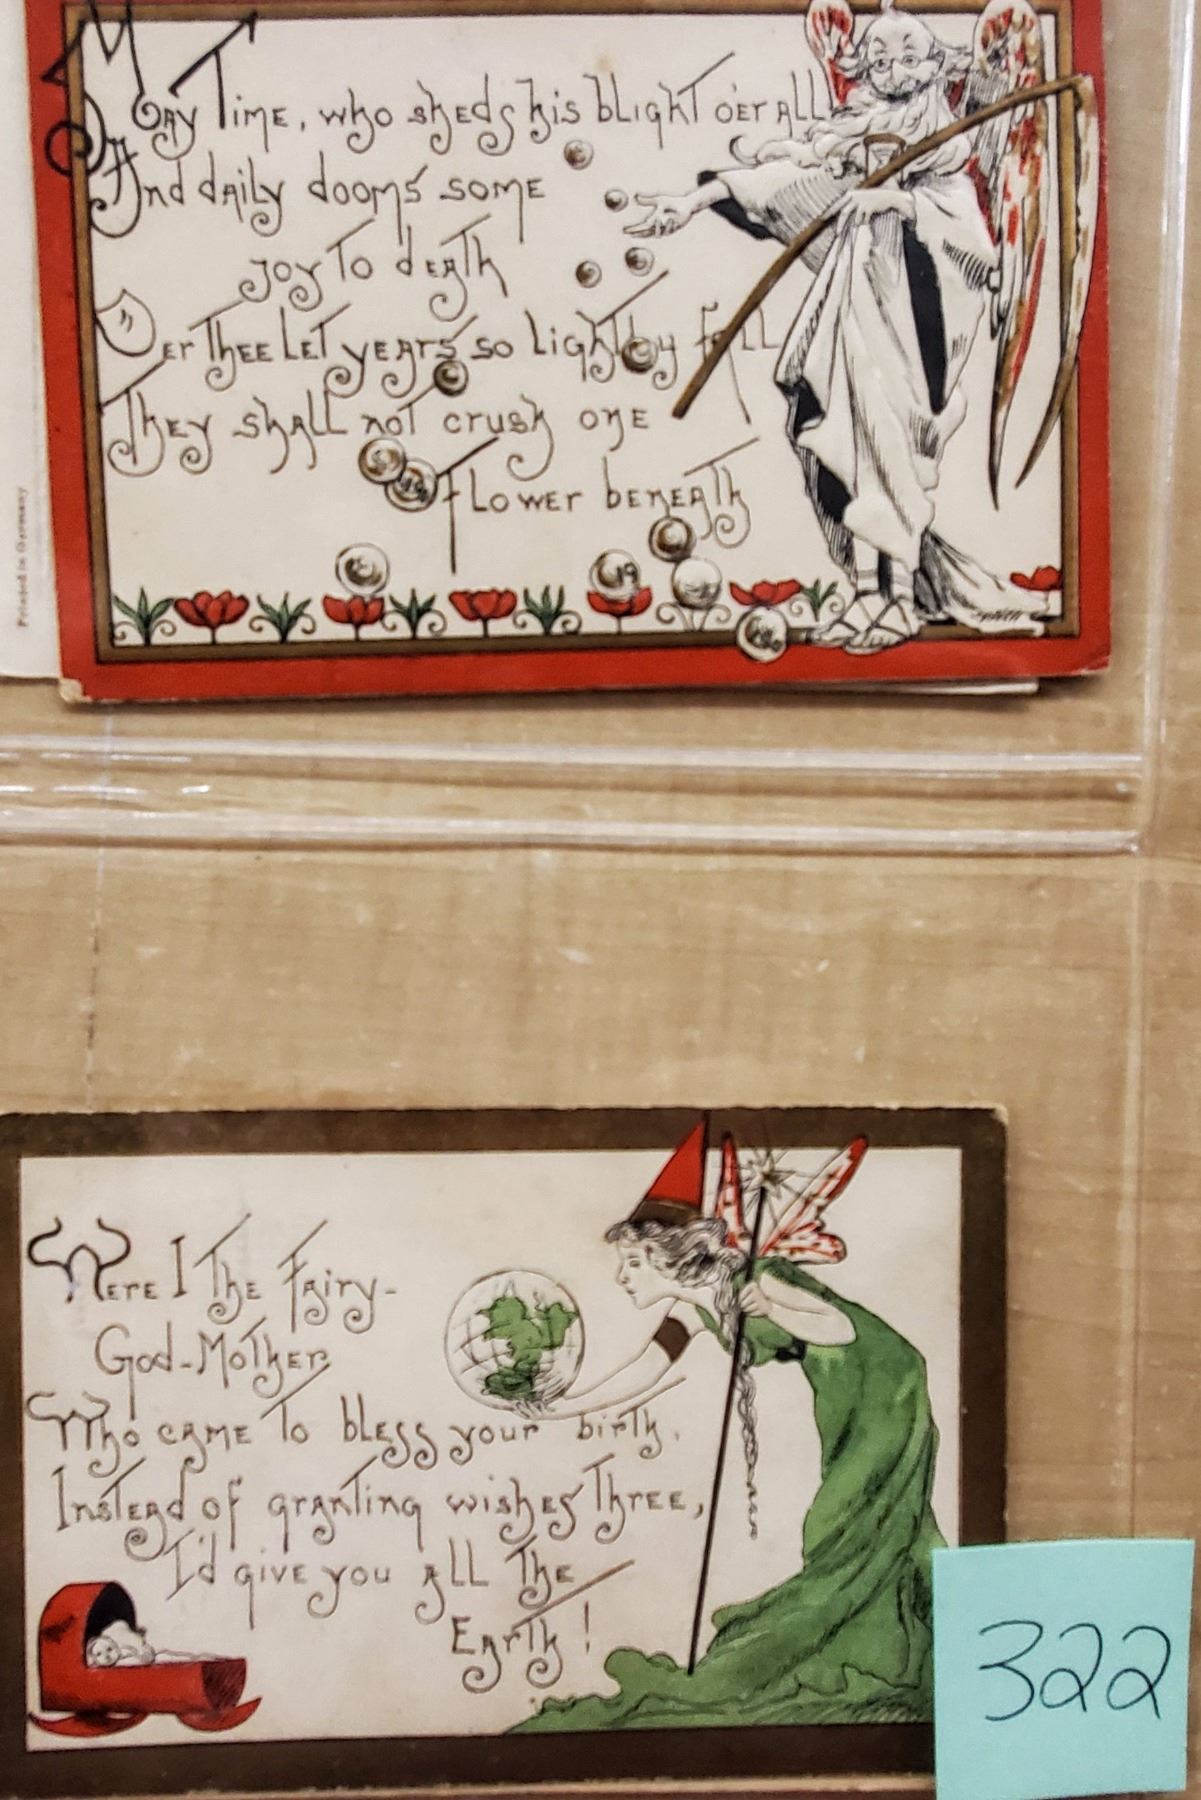 May Time, who sheds his blight o'er all
And daily dooms some
joy to death
O'er thee let years so lightly fall
They shall not crush one
flower beneath
19
Printed in Germany
Were I the Fairy-
God-Mother
Who came to bless your birth,
Instead of granting wishes three,
I'd give you all the
Earth!
322